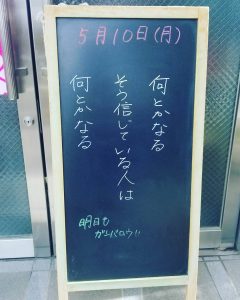 5月10日(月)
何とかなる
そう信じている人は
何とかなる
明日も
ガンバロウ!!